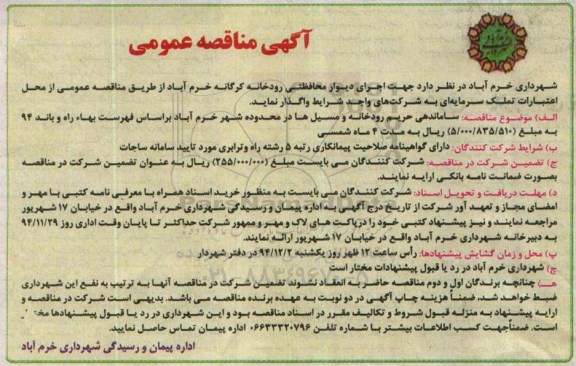 آگهی مناقصه عمومی
شهرداری خرم آباد در نظر دارد جهت اجرای دیوار محافظتی رودخانه کرگانه خرم آباد از طریق مناقصه عمومی از محل
اعتبارات تملک سرمایه‌ای به شرکت‌های واجد شرایط واگذار نماید.
الف) موضوع مناقصه: ساماندهی حریم رودخانه و مسیل ها در محدوده شهر خرم آباد براساس فهرست بهاء راه و باند ۹۴
به مبلغ (۵/۰۰۰/۸۳۵/۵۱۰) ریال به مدت ۴ ماه شمسی
ب) شرایط شرکت کنندگان: دارای گواهینامه صلاحیت پیمانکاری رتبه ۵ رشته راه وترابری مورد تایید سامانه ساجات
ج) تضمین شرکت در مناقصه: شرکت کنندگان می بایست مبلغ (۲۵۵/۰۰۰/۰۰۰) ریال به عنوان تضمین شرکت در مناقصه
بصورت ضمانت نامه بانکی ارایه نمایند.
د) مهلت دریافت و تحویل اسناد: شرکت کنندگان می بایست به منظور خرید اسناد همراه با معرفی نامه کتبی با مهر و
امضای مجاز و تعهد آور شرکت از تاریخ درج آگهی به اداره پیمان و رسیدگی شهرداری خرم آباد واقع در خیابان ۱۷ شهریور
مراجعه نمایند و نیز پیشنهاد کتبی خود را درپاکت های لاک و مهر و ممهور شرکت حداکثر تا پایان وقت اداری روز ۹۴/۱۱/۲۹
به دبیرخانه شهرداری خرم آباد واقع در خیابان ۱۷ شهریور ارائه نمایند.
پ) محل و زمان گشایش پیشنهادها: رأس ساعت ۱۲ ظهر روز یکشنبه ۹۴/۱۲/۲ در دفتر شهردار
چ) شهرداری خرم آباد در رد یا قبول پیشنهادات مختار است
هـ) چنانچه برندگان اول و دوم مناقصه حاضر به انعقاد نشوند تضمین شرکت در مناقصه آنها به ترتیب به نفع این شهرداری
ضبط خواهد شد. ضمناً هزینه چاپ آگهی در دو نوبت به عهده برنده مناقصه می باشد. بدیهی است شرکت در مناقصه و
ارایه پیشنهاد به منزله قبول شروط و تکالیف مقرر در اسناد مناقصه بود و این شهرداری در رد یا قبول پیشنهادها
است. ضمناًجهت کسب اطلاعات بیشتر با شماره تلفن ۰۶۶۳۳۳۲۰۷۹۶ اداره پیمان تماس حاصل نمایید.
اداره پیمان و رسیدگی شهرداری خرم آباد